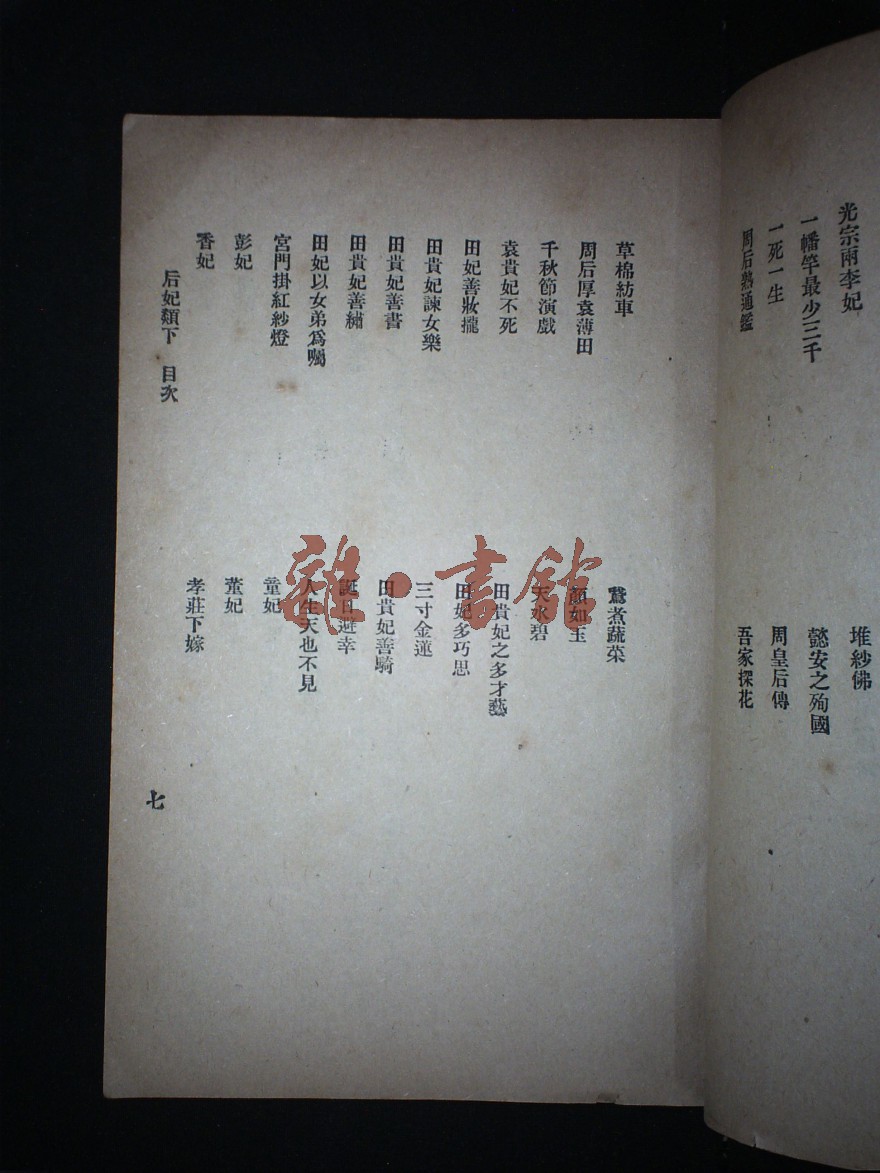 光宗兩李妃
堆紗佛
一幡竿最少三千
懿安之殉國
一死一生
周皇后傳
周后熟通鑑
吾家探花
草棉紡車
鵞煮蔬菜
周后厚袁薄田
顏如玉
千秋節演戲
天水碧
袁貴妃不死
田貴妃之多才藝
田妃善妝攏
田妃多巧思
田貴妃諫女樂
三寸金蓮
田貴妃善書
田貴妃善騎
田貴妃善繡
誕日避幸
田妃以女弟爲囑
人生天也不見
宮門掛紅紗燈
童妃
彭妃
董妃
香妃
孝莊下嫁
后妃類下 目次
七
雜·書館